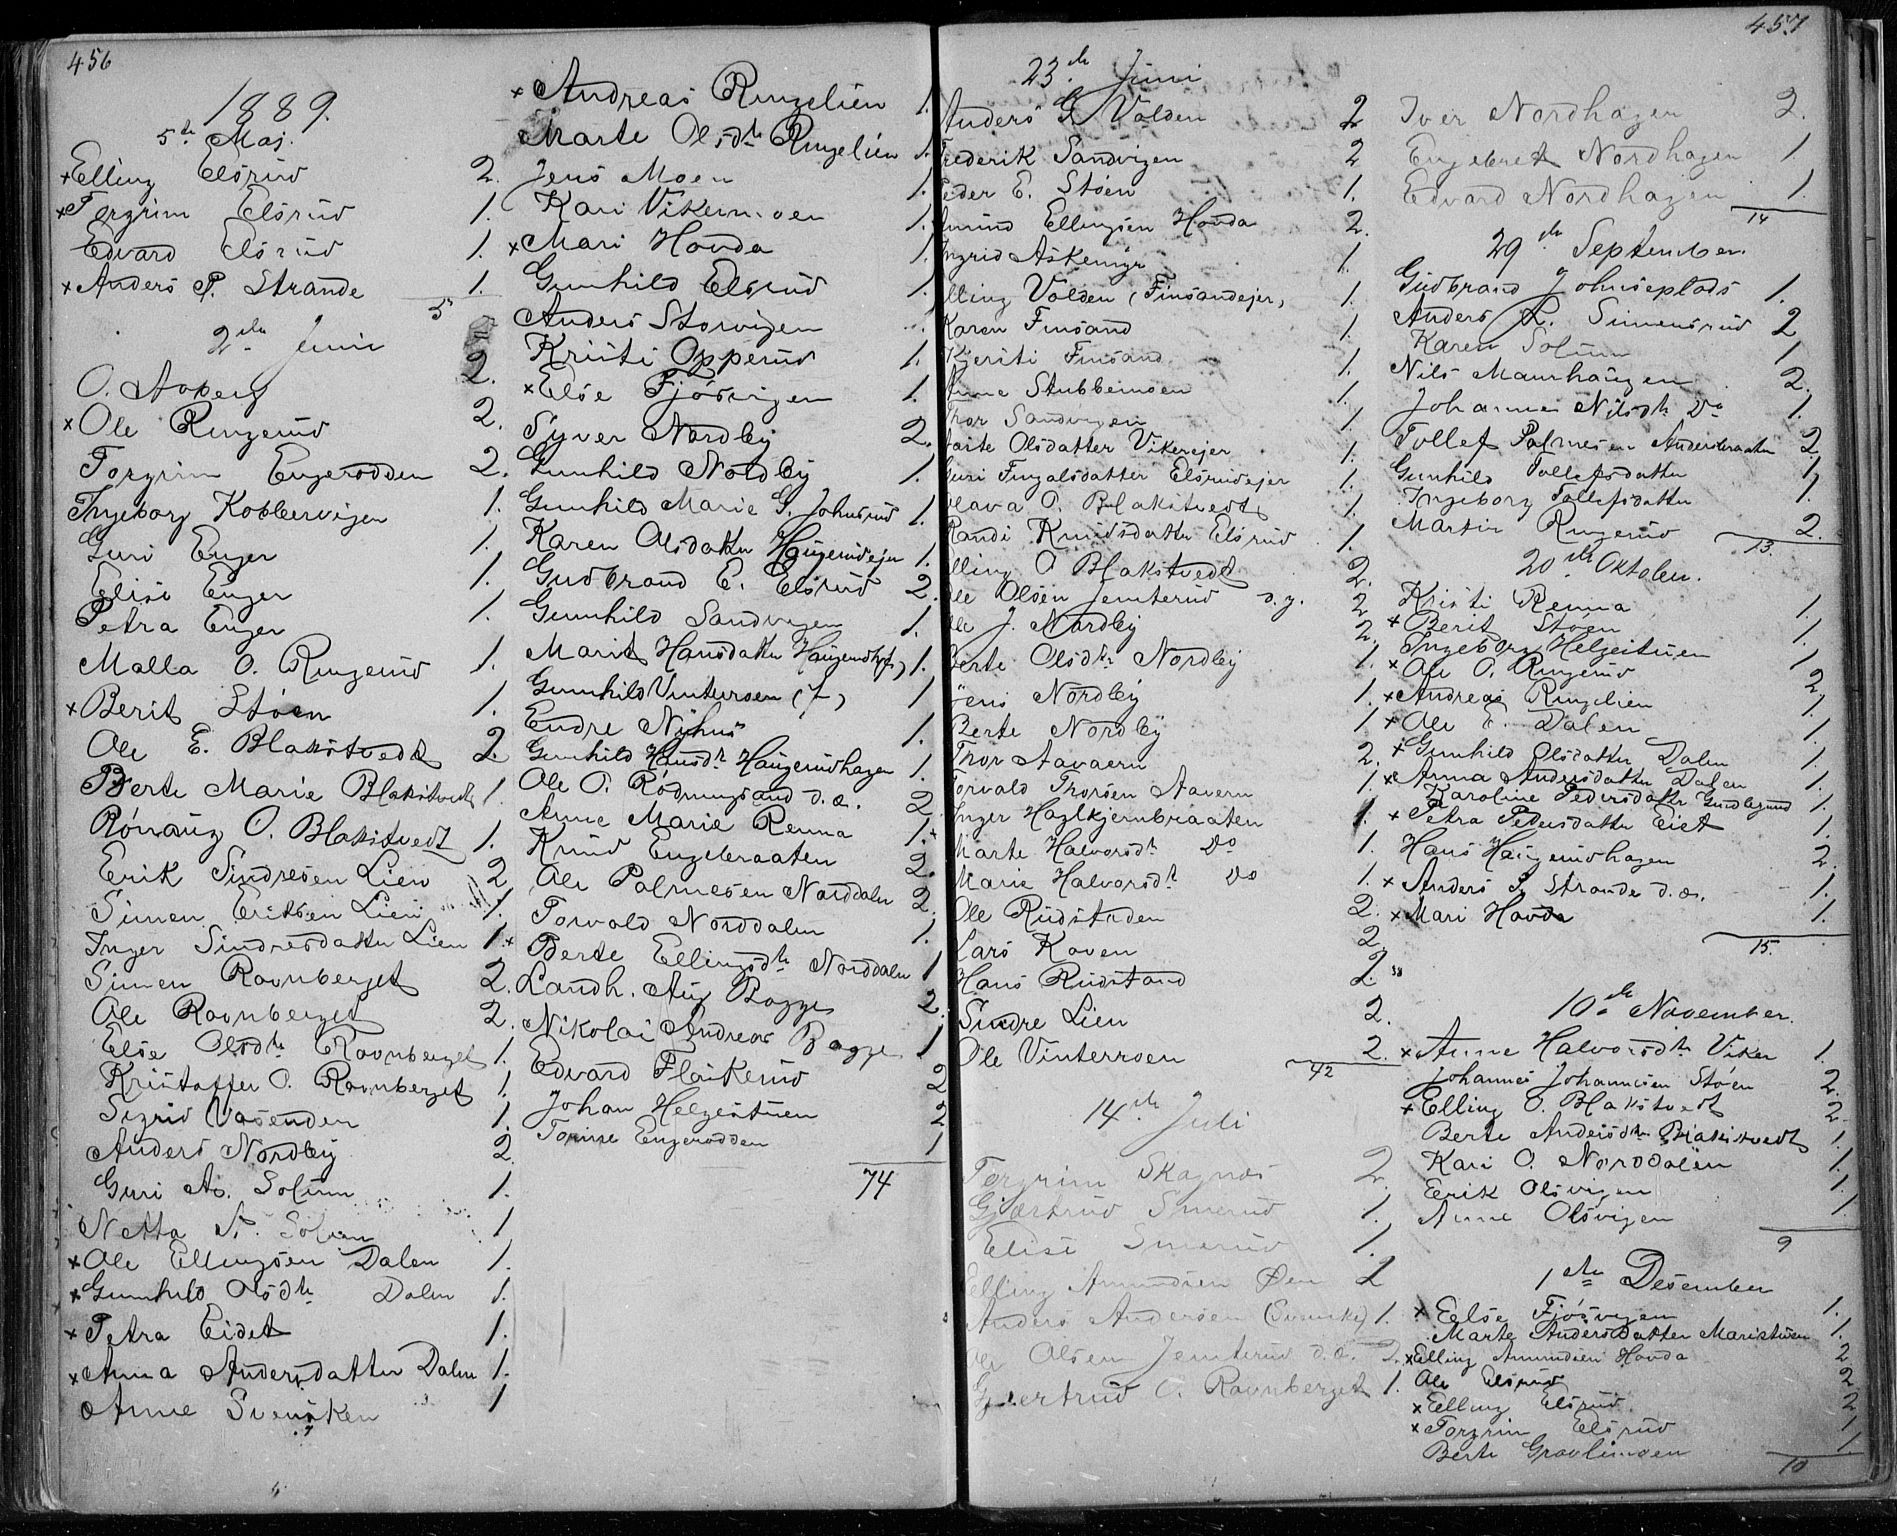 456
1889.
5te Maj.
×Elling Elsrud 2.
×Torgrim Elsrud 1.
Edvard Elsrud 1.
×Anders P. Strande 1.
5
2den Juni
O. Aaberg 2.
×Ole Ringerud 2.
Torgrim Engerodden 2.
Ingeborg Kobbervigen 1.
Guri Enger 1.
Elise Enger 1.
Petra Enger 1.
Malla O. Ringerud 1.
×Berit Støen 1.
Ole E. Blakstvedt 2.
Berte Marie Blakstvedt 1.
Rønnaug O. Blakstvedt 1.
Erik Sindresen Lien 2
Simen Eriksen Lien 1.
Inger Sindresdatter Lien 1.
Simen Ravnberget 2.
Ole Ravnberget 2.
Else Olsdtr Ravnberget 1.
Kristoffer O. Ravnberget 1.
Sigrid Vasenden 1.
Anders Nordby 2.
Guri As. Solum 1.
Netta A. Solum 1
×Ole Ellingsen Dalen 1.
×Gunhild Olsdtr Dalen 1.
×Petra Eidet 1.
×Anna Andersdatter Dalen 1.
Anne Svensken 1
×Andreas Ringelien 1.
Marte Olsdtr Ringelien 1.
Jens Moen 1.
Kari Vikermoen 1.
×Mari Hovda 1.
Gunhild Elsrud 1.
Anders Storvigen 1.
Kristi Opperud 1.
×Else Fjøsvigen 1.
Syver Nordby 2.
Gunhild Nordby 1.
Gunhild Marie G. Johnsrud 1.
Karen Olsdatter Haugerudejer 1.
Gudbrand E. Elsrud 2.
Gunhild Sandvigen 1.
Marit Hansdatter 1.
Gunhild Vinterroen 1
Endre Nyhus 1.
Gunhild Hansdtr Haugerudhagen 1.
Ole O. Rødningsand d.æ. 2.
Anne Marie Renna 1.
Knud Engebraaten 2.
Ole Palmesen Norddalen 2.
Torvald Norddalen 1.
×Berte Ellingsdtr Norddalen 1
Landh. Aug Bagge 2.
Nikolai Andreas Bagge 1
Edvard Flaskerud 2
Johan Helgestuen 2
Torine Engerodden 1
74
457
23de Juni
Anders G. Volden 2
Frederik Sandvigen 2
Peder E. Støen 1.
Amund Ellingsen Hovda 2.
Ingrid Askemyr 1.
Elling Volden (Finsandejer) 1.
Karen Finsand 1.
Kjersti Finsand 1.
Anne Stubbemoen 1.
Thor Sandvigen 1
Marte Olsdatter Vikerejer 1.
Guri Fingalsdatter Elsrudejer 1.
Olava O. Blakstvedt 1.
Randi Knudsdatter Elsrud 1.
Elling O Blakstvedt 2.
Ole Olsen Jemterud d.y. 2
Ole J. Nordby 2.
Berte Olsdtr Nordby 1.
Jens Nordby 1.
Berte Nordby 1
Thor Aavaern 2.
Torvald Thorsen Aavern 1.
Inger Haglkjernbraaten 1.
Marte Halvorsdt Do 1.
Marie Halvorsdt Do 1.
Ole Rudstaden 2.
Lars Koven 2.
Hans Rudstand 2.
Sindre Lien 2.
Ole Vinterroen 2.
42
14de Juli
Torgrim Skagnæs 2.
Gjærtrud Smerud 1.
Elise Smerud 1.
Elling Amundsen Øen 2
Anders Andersen (Svenske) 1.
Ole Olsen Jemterud d.æ. 2.
Gjertrud O. Ravnberget 1.
Iver Nordhagen 2.
Engebret Nordhagen 1.
Edvard Nordhagen 1.
14
29de September.
Gudbrand Johnseplads 1.
Anders L. Simensrud 2
Karen Solum 1
Nils Maurhaugen 2.
Johanne Nilsdtr Do 1.
Tollef Palmesen Andersbraaten 2
Gunhild Tollefsdatter 1
Ingeborg Tollefsdatter 1.
Martin Ringerud 2.
13.
20de Oktober.
Kristi Renna 1.
×Berit Støen 1.
Ingeborg Helgestuen 1
×Ole O. Ringerud 2
×Andreas Ringelien 1.
×Ole E. Dalen 1.
×Gunhild Olsdatter Dalen 1.
×Anna Andersdatter Dalen 1.
Karoline Pedersdatter 1.
×Petra Pedersdatter Eiet 1.
Hans Haugerudhagen 2.
×Anders P. Strande d.æ. 1.
×Mari Hovda 1.
15.
10de November.
×Anne Halvorsdtr Viker 1.
Johannes Johannesen Støen 2.
×Elling O. Blakstvedt 2.
Berte Andersdtr Blakstvedt 1.
Kari O. Norddalen 1.
Erik Olsvigen 1.
Anne Olsvigen 1
9
1ste Desember
×Else Fjøsvigen 1.
Marte Andersdatter Maristuen 1.
×Elling Amundsen Hovda 2
Ole Elsrud 2
×Elling Elsrud. 2
×Torgrim Elsrud 1
Berte Gravlimoen 1.
10